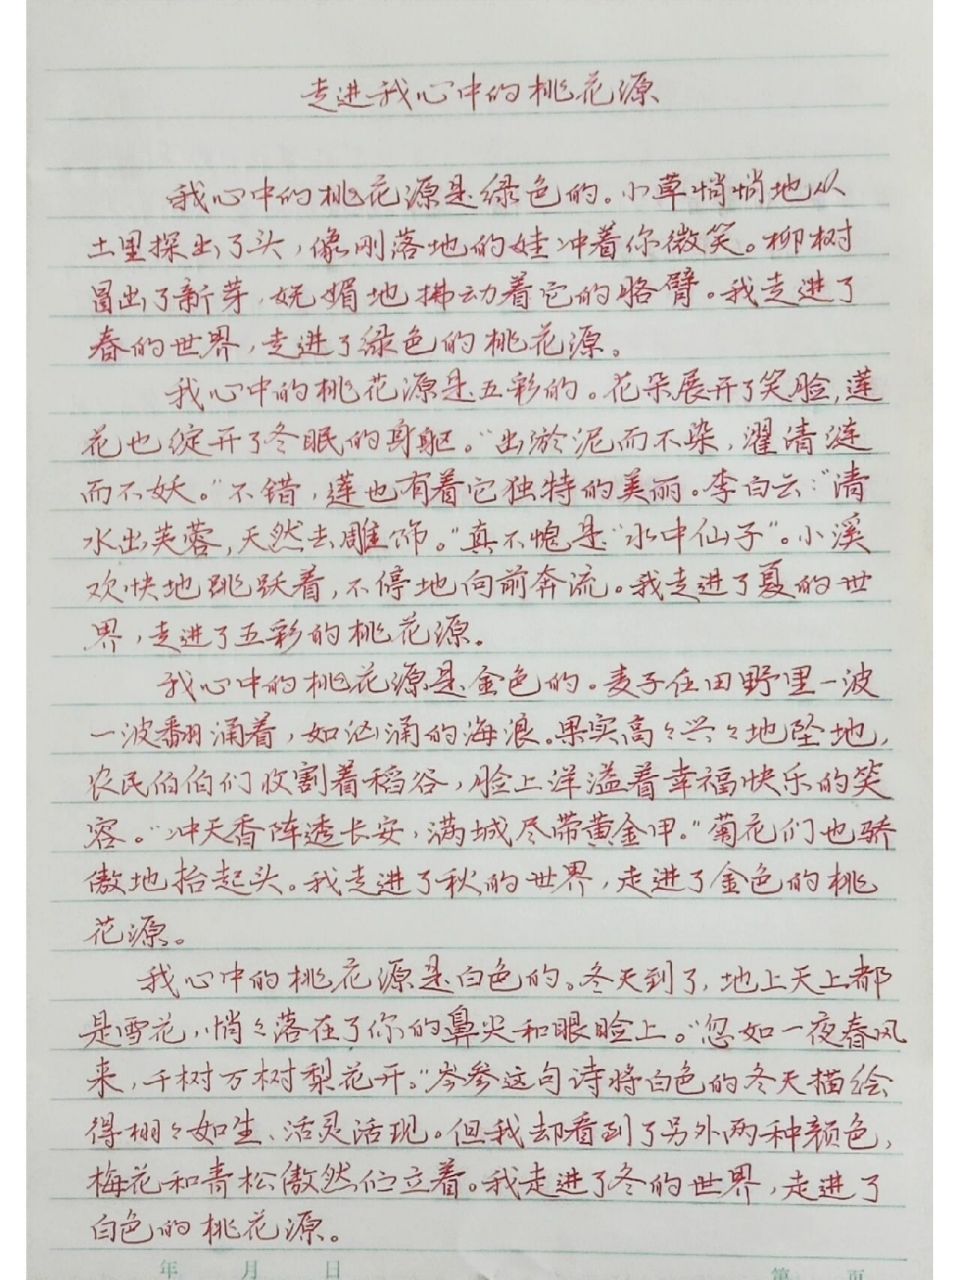 走进我心中的桃花源
我心中的桃花源是绿色的。小草悄悄地从
土里探出了头，像刚落地的娃冲着你微笑。柳树
冒出了新芽，妩媚地拂动着它的胳臂。我走进了
春的世界，走进了绿色的桃花源。
我心中的桃花源是五彩的。花朵展开了笑脸，莲
花也绽开了冬眠的身躯。“出淤泥而不染，濯清涟
而不妖。”不错，莲也有着它独特的美丽。李白云：“清
水出芙蓉，天然去雕饰。”真不愧是“水中仙子”。小溪
欢快地跳跃着，不停地向前奔流。我走进了夏的世
界，走进了五彩的桃花源。
我心中的桃花源是金色的。麦子在田野里一波
一波翻涌着，如汹涌的海浪。果实高々兴々地坠地，
农民伯伯们收割着稻谷，脸上洋溢着幸福快乐的笑
容。“冲天香阵透长安，满城尽带黄金甲。”菊花们也骄
傲地抬起头。我走进了秋的世界，走进了金色的桃
花源。
我心中的桃花源是白色的。冬天到了，地上天上都
是雪花，悄々落在了你的鼻尖和眼睑上。“忽如一夜春风
来，千树万树梨花开。”岑参这句诗将白色的冬天描绘
得栩々如生、活灵活现。但我却看到了另外两种颜色，
梅花和青松傲然伫立着。我走进了冬的世界，走进了
白色的桃花源。
年 月 日 第 页